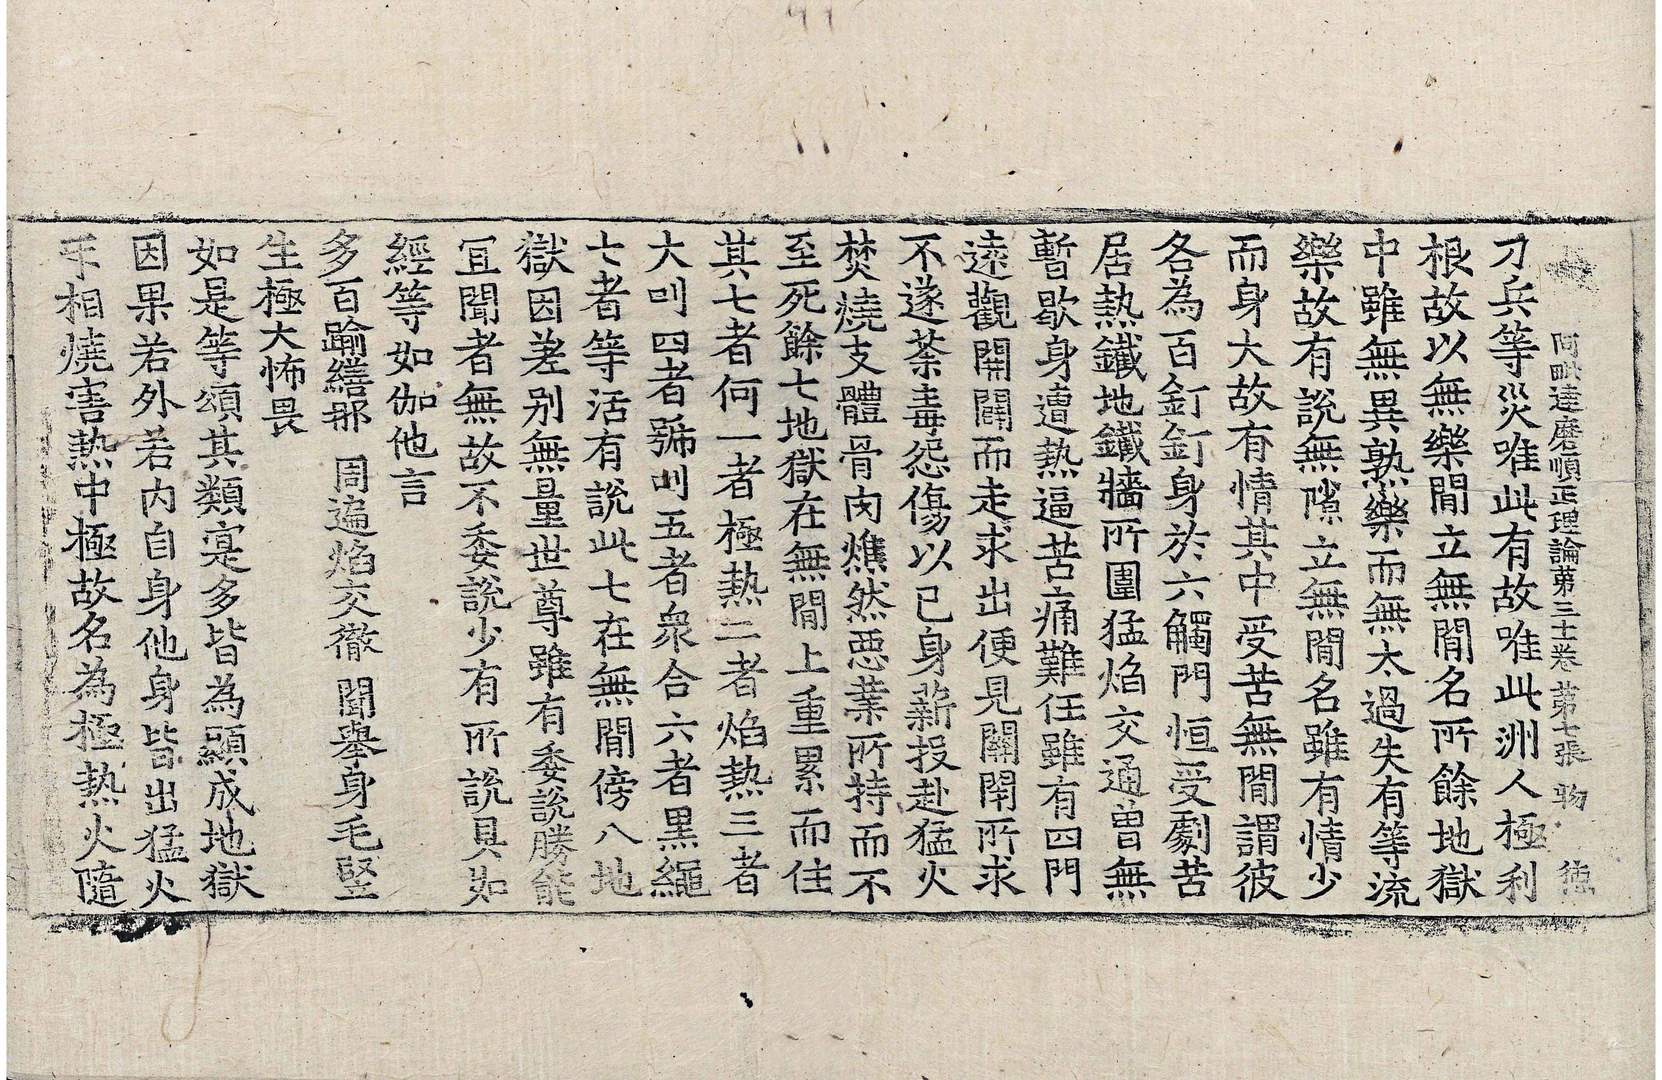 阿毗達磨順正理論第三十一卷 第七張 物 德
刀兵等災唯此有故唯此洲人極利
根故以無樂閒立無閒名所餘地獄
中雖無異熟樂而無太過失有等流
樂故有說無隙立無閒名雖有情少
而身大故有情其中受苦無閒謂彼
各為百釘釘身於六觸門恒受劇苦
居熱鐵地鐵牆所圍猛焰交通曾無
暫歇身遭熱逼苦痛難任雖有四門
遠觀開闢而走求出便見關閉所求
不遂荼毒怨傷以已身薪投赴猛火
焚燒支體骨肉燋然惡業所持而不
至死餘七地獄在無閒上重累而住
其七者何一者極熱二者焰熱三者
大叫四者號叫五者衆合六者黑繩
七者等活有說此七在無閒傍八地
獄因差别無量世尊雖有委說勝能
冝聞者無故不委說少有所說具如
經等如伽他言
多百踰繕那 周遍焰交徹 聞舉身毛豎
生極大怖畏
如是等頌其類寔多皆為顯成地獄
因果若外若內自身他身皆出猛火
手相燒害熱中極故名為極熱火隨